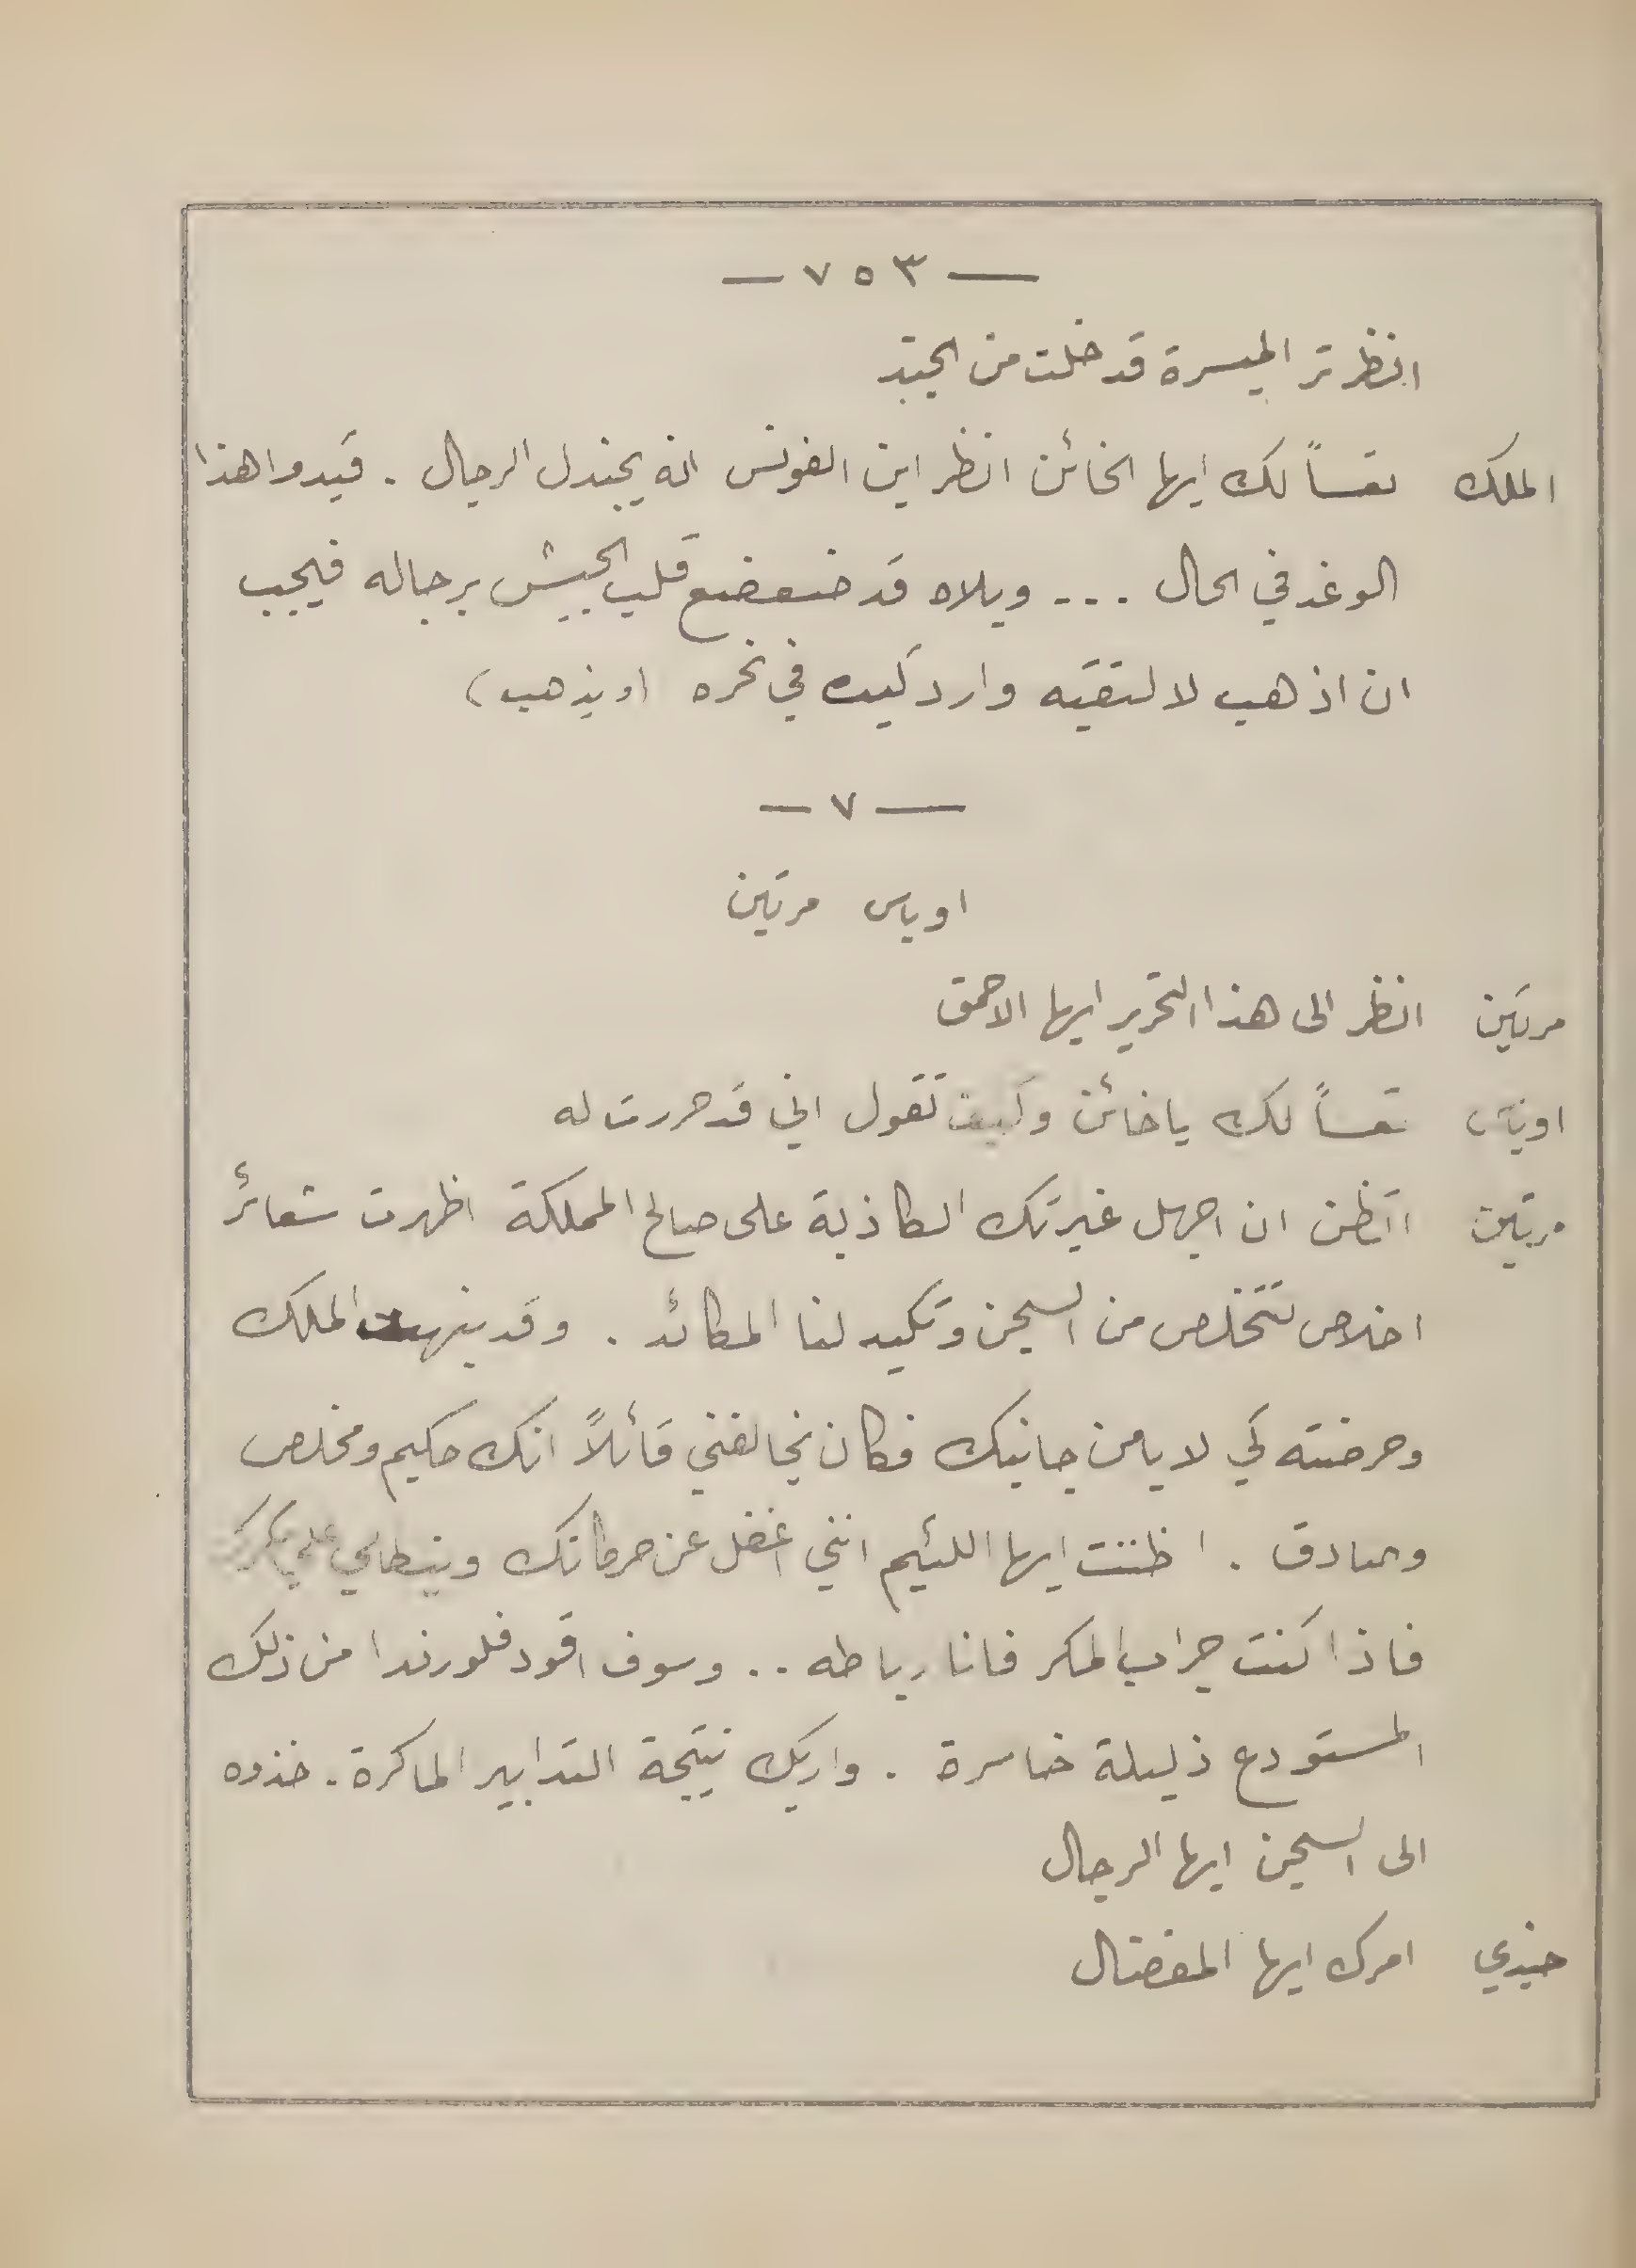 — ٧٥٣ —
انظر تر الميسرة قد خلت من الجند
الملك تعساً لك ايها الخائن انظر اين الفونس انه يجندل الرجال . قيدوا هذا
الوغد في الحال ... ويلاه قد ضعضع قلب الجيش برجاله فيجب
ان اذهب لالتقيه وارد كيده في نحره (ويذهب)
— ٧ —
اوباس مرتين
مرتين انظر الى هذا التحرير ايها الاحمق
اوباس تعساً لك يا خائن وكيف تقول اني قد حررت له
مرتين اتظن ان اجهل غيرتك الكاذبة على صالح المملكة اظهرت شعائر
اخلاص لتتخلص من السجن وتكيد لنا المكائد . وقد نبهت الملك
وحرضته كي لا يامن جانبك فكان يخالفني قائلاً انك حكيم ومخلص
وصادق . اظننت ايها اللئيم انني اغفل عن حركاتك وينطلي علي مكرك
فاذا كنت جراب المكر فانا رباطه .. وسوف اقود فلورندا من ذلك
المستودع ذليلة خاسرة . واريك نتيجة التدابير الماكرة . خذوه
الى السجن ايها الرجال
جندي امرك ايها المفضال